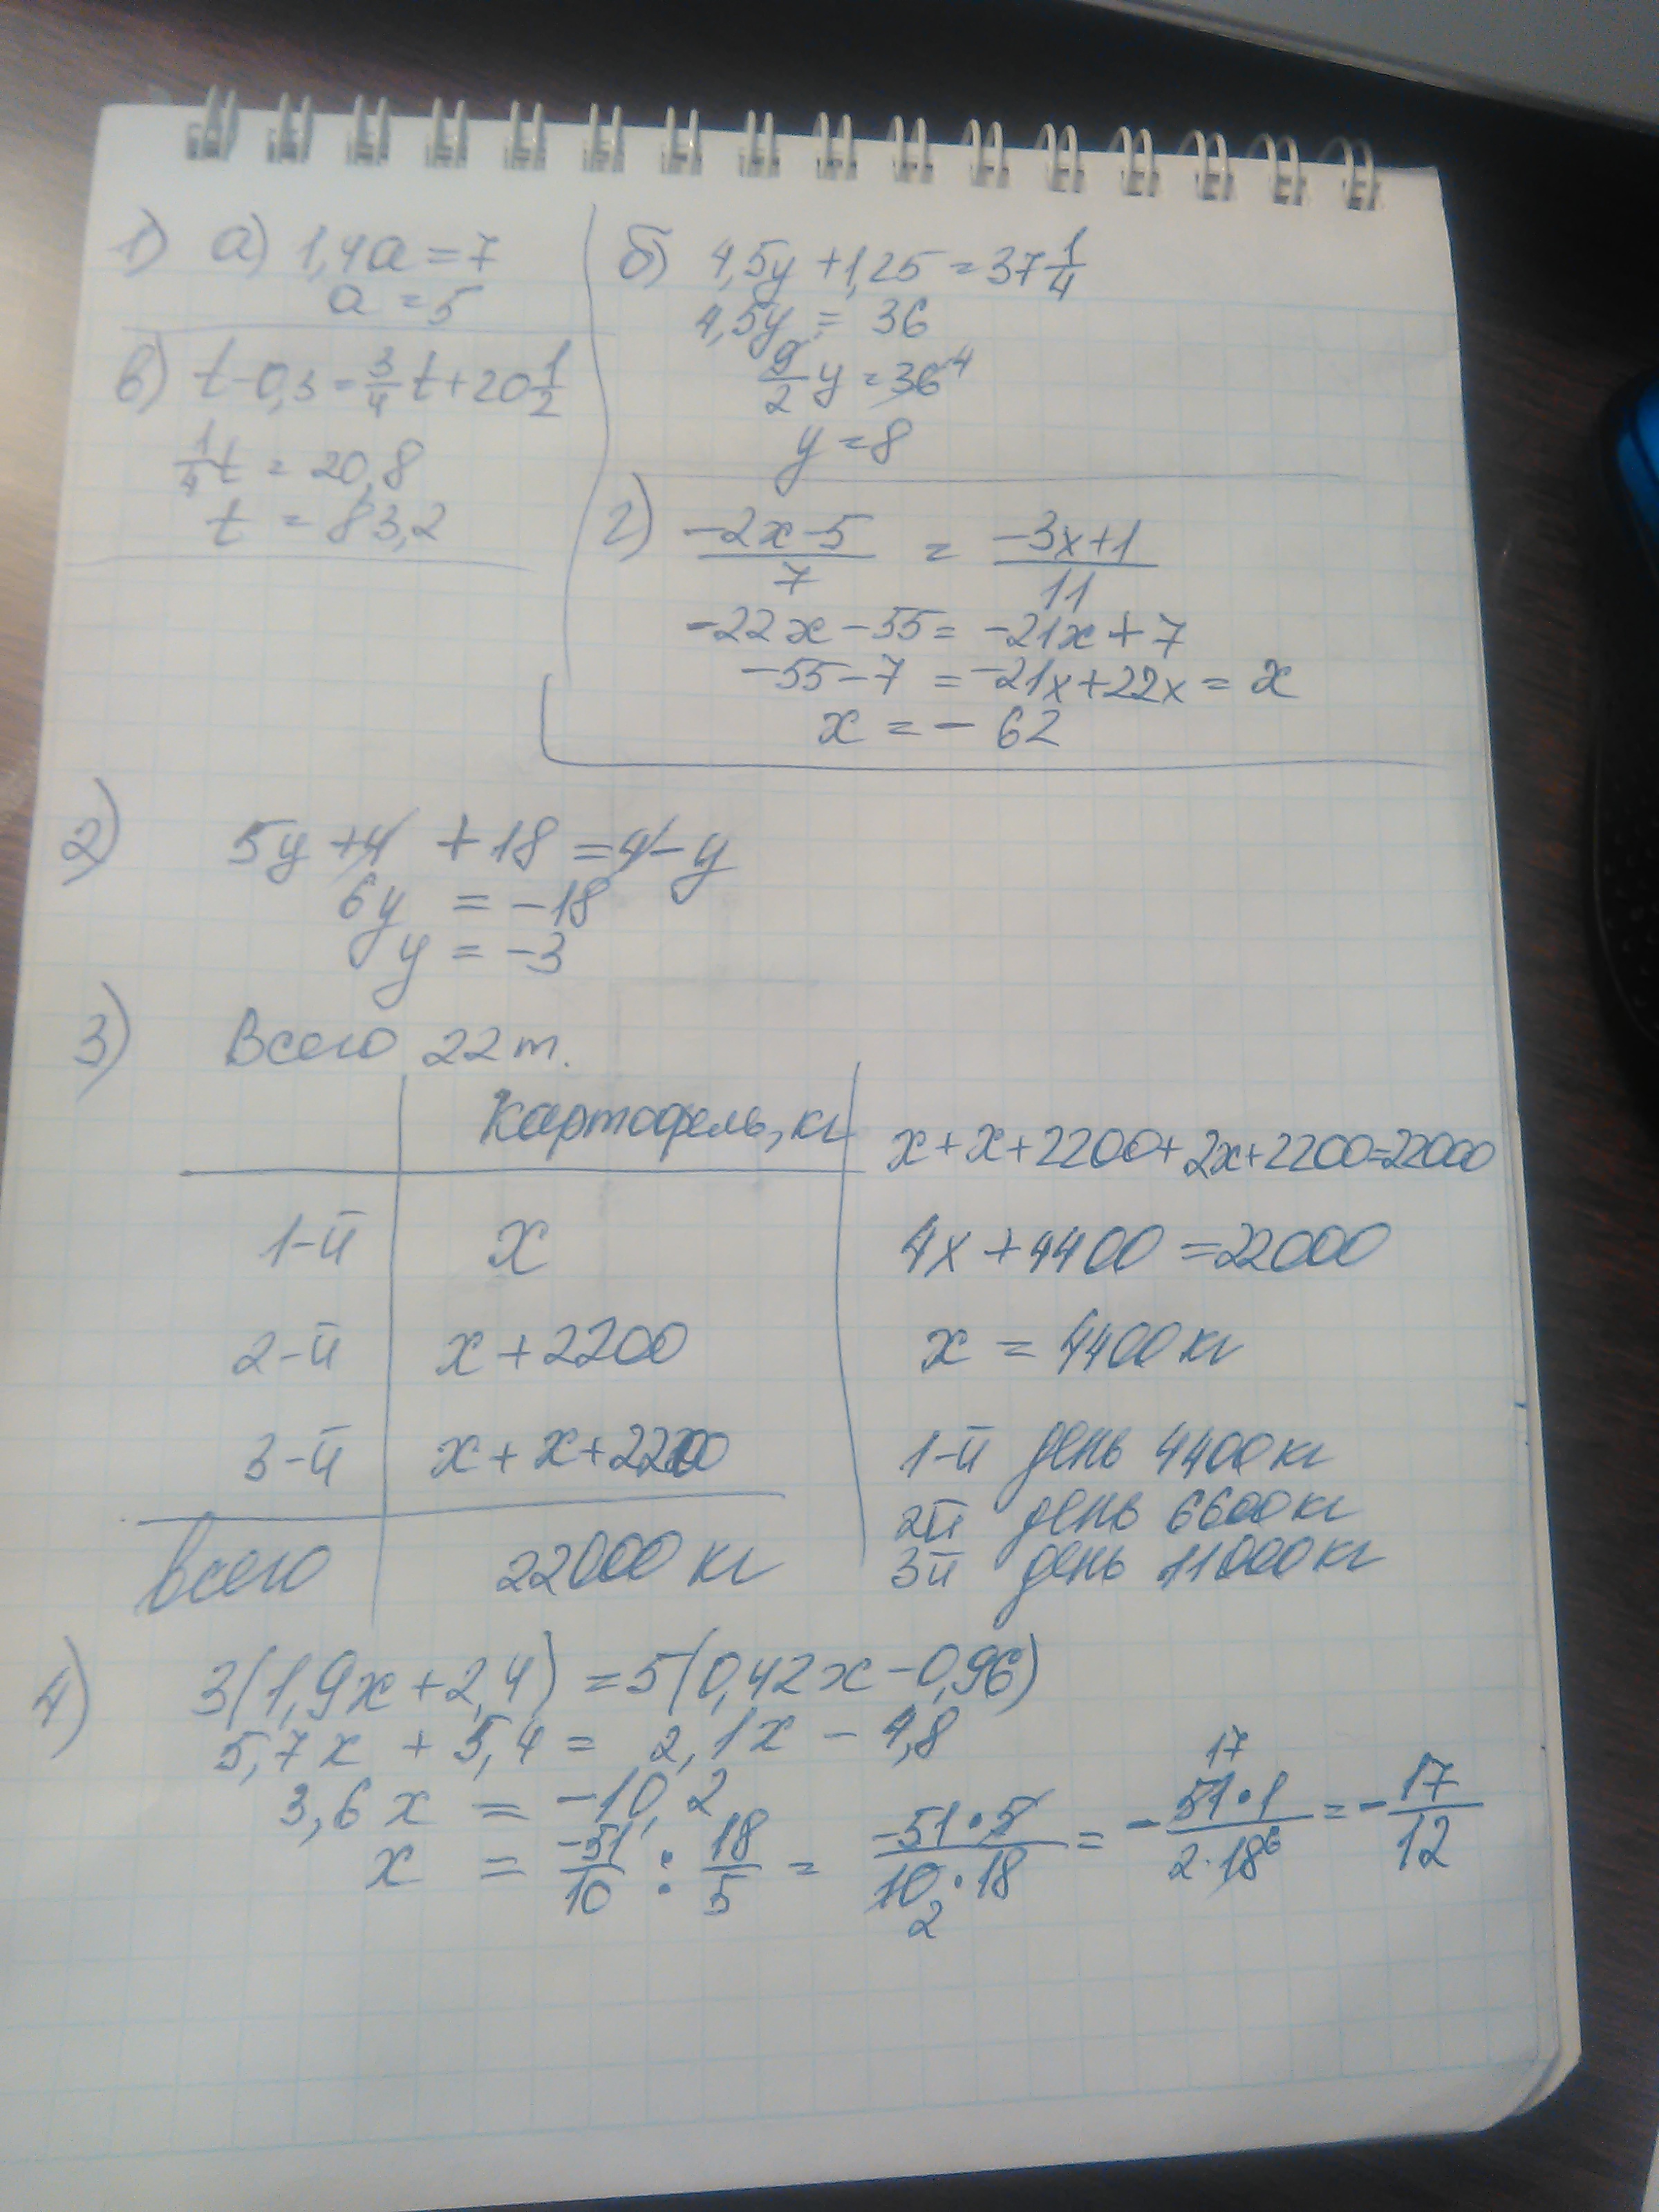 1) а) 1,4a = 7
a = 5
б) 4,5y + 1,25 = 37 1/4
4,5y = 36
9/2 y = 36 4
y = 8
в) t - 0,3 = 3/4 t + 20 1/2
1/4 t = 20,8
t = 83,2
г) (-2x - 5)/7 = (-3x + 1)/11
-22x - 55 = -21x + 7
-55 - 7 = -21x + 22x = x
x = - 62
2) 5y + 4 + 18 = 4 - y
6y = -18
y = -3
3) Всего 22 т.
Картофель, кг
1-й x
2-й x + 2200
3-й x + x + 2200
Всего 22000 кг
x + x + 2200 + 2x + 2200 = 22000
4x + 4400 = 22000
x = 4400 кг
1-й день 4400 кг
2й день 6600 кг
3й день 11000 кг
4) 3(1,9x + 2,4) = 5(0,42x - 0,96)
5,7x + 5,4 = 2,1x - 4,8
3,6x = -10,2
x = -51/10 : 18/5 = (-51 · 5)/(10 2 · 18) = - (51 17 · 1)/(2 · 18 6) = - 17/12